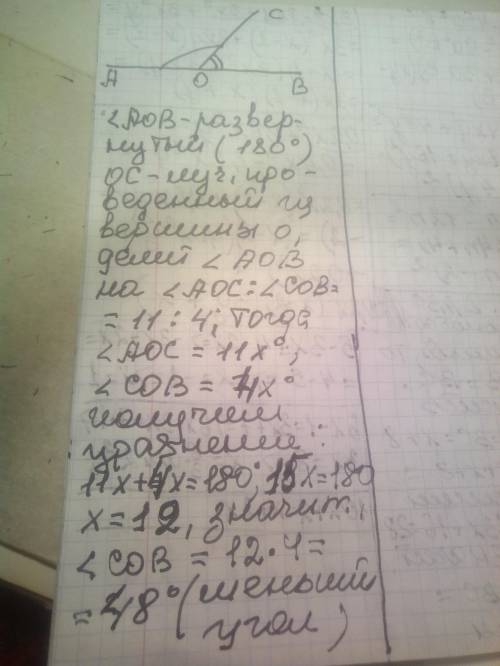 C
A O B
∠AOB-развер-
нутый (180°)
OC-луч, про-
веденный из
вершины O,
делит ∠AOB
на ∠AOC:∠COB=
=11:4; тогда
∠AOC=11x°,
∠COB=4x°
получим
уравнение:
11x+4x=180; 15x=180
x=12, значит,
∠COB=12·4=
=48° (меньший
угол)